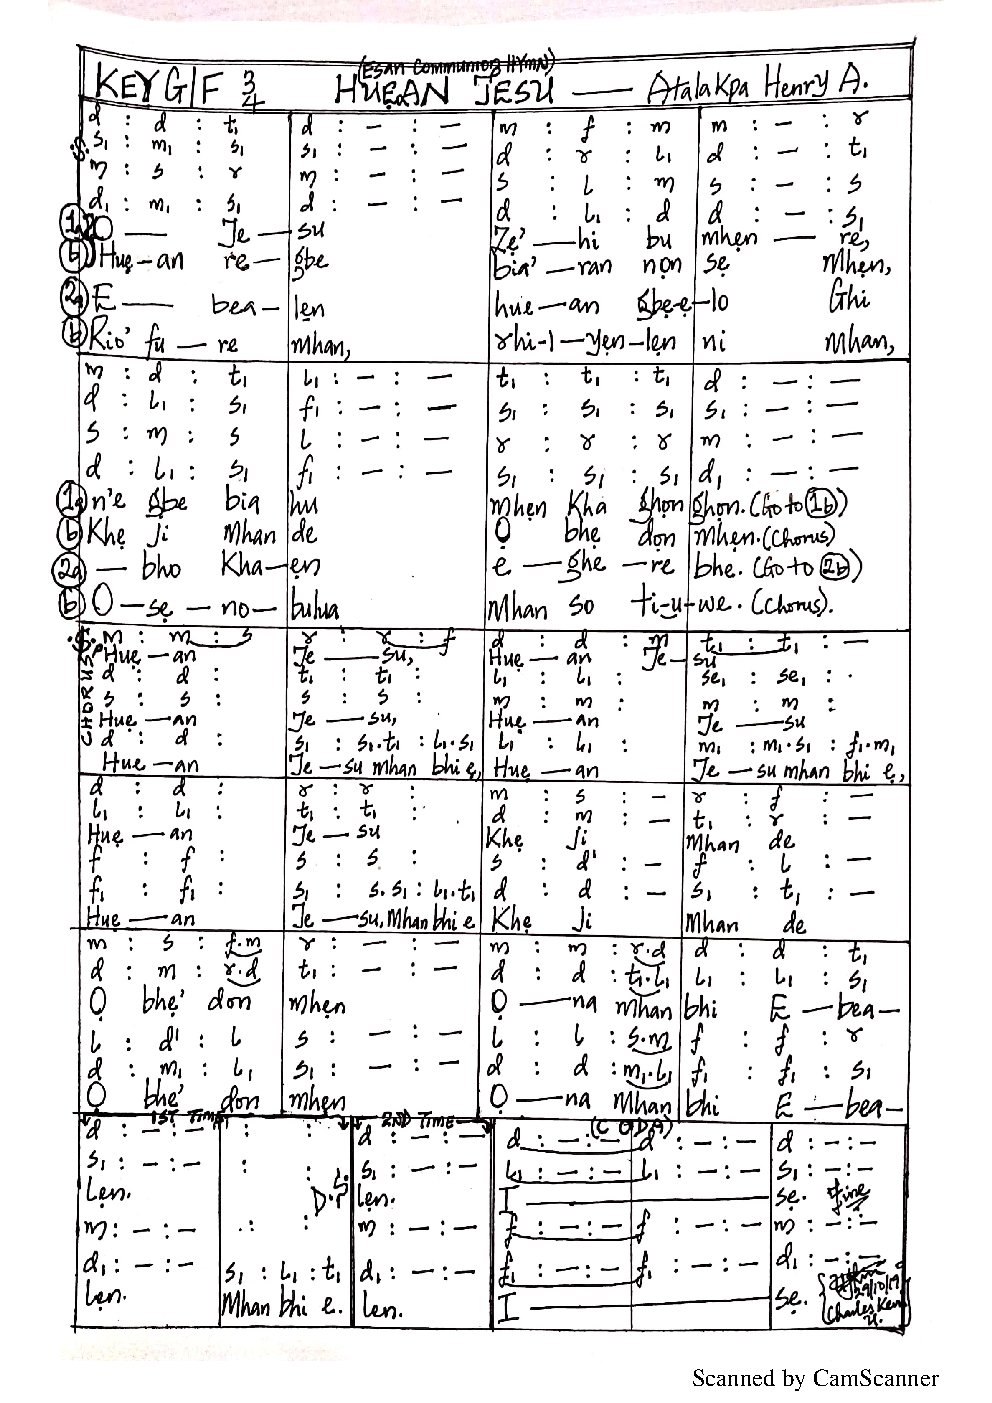 (ESAN COMMUNION HYMN)
KEY G/F 3/4 HUẸAN JESU — Atalakpa Henry A.
d : d : t₁ d : — : — m : f : m m : — : r
s₁ : m₁ : s₁ s₁ : — : — d : r : l₁ d : — : t₁
m : s : r m : — : — s : l : m s : — : s
d₁ : m₁ : s₁ d : — : — d : l₁ : d d : — : s₁
1a O — Je — su Zẹ' — hi bu mhẹn — re,
b Huẹ — an re — gbe bia' — ran nọn sẹ Mhẹn,
2a E — bea — lẹn hue — an gbẹ-e — lo Ghi
b Rio' fu — re mhan, rhi-l — yẹn — lẹn ni mhan,
m : d : t₁ l₁ : — : — t₁ : t₁ : t₁ d : — : —
d : l₁ : s₁ f₁ : — : — s₁ : s₁ : s₁ s₁ : — : —
s : m : s l : — : — r : r : r m : — : —
d : l₁ : s₁ f₁ : — : — s₁ : s₁ : s₁ d₁ : — : —
1a n'e gbe bia hu mhẹn Kha ghọn ghọn. (Go to 1b)
b Khẹ ji mhan de Ọ bhẹ dọn mhẹn. (Chorus)
2a — bho Kha — ẹn e — ghe — re bhe. (Go to 2b)
b O — sẹ — no — bulua Mhan so ti-u-we. (Chorus).
CHORUS
m : m : s r : r : f d : d : m t₁ : t₁ : —
Huẹ — an Je — su, Huẹ — an Je — su
d : d : t₁ : t₁ : l₁ : l₁ : se₁ : se₁ : .
s : s : s : s : m : m : m : m :
Huẹ — an Je — su, Huẹ — an Je — su
d : d : s₁ : s₁.t₁ : l₁.s₁ l₁ : l₁ : m₁ : m₁.s₁ : f₁.m₁
Huẹ — an Je — su mhan bhi ẹ, Huẹ — an Je — su mhan bhi ẹ,
d : d : r : r : m : s : — r : f : —
l₁ : l₁ : t₁ : t₁ : d : m : — t₁ : r : —
Huẹ — an Je — su Khẹ Ji Mhan de
f : f : s : s : s : d' : — f : l : —
f₁ : f₁ : s₁ : s.s₁ : l₁.t₁ d : d : — s₁ : t₁ : —
Huẹ — an Je — su, Mhan bhi e Khẹ Ji Mhan de
m : s : f.m r : — : — m : m : r.d d : d : t₁
d : m : r.d t₁ : — : — d : d : t₁.l₁ l₁ : l₁ : s₁
Ọ bhẹ' don mhẹn O — na mhan bhi E — bea —
l : d' : l s : — : — l : l : s.m f : f : r
d : m₁ : l₁ s₁ : — : — d : d : m₁.l₁ f₁ : f₁ : s₁
Ọ bhe' dọn mhẹn O — na Mhan bhi E — bea —
1ST TIME 2ND TIME (CODA)
d : — : — : : d : — : — d : — : — d : — : — d : — : —
s₁ : — : — : : s₁ : — : — l₁ : — : — l₁ : — : — s₁ : — : —
lẹn. D.S lẹn. I — sẹ. fine
m : — : — : : m : — : — f : — : — f : — : — m : — : —
d₁ : — : — s₁ : l₁ : t₁ d₁ : — : — f₁ : — : — f₁ : — : — d₁ : — : —
lẹn. Mhan bhi e. len. I — sẹ.
29/10/19
Charles Ken
Scanned by CamScanner